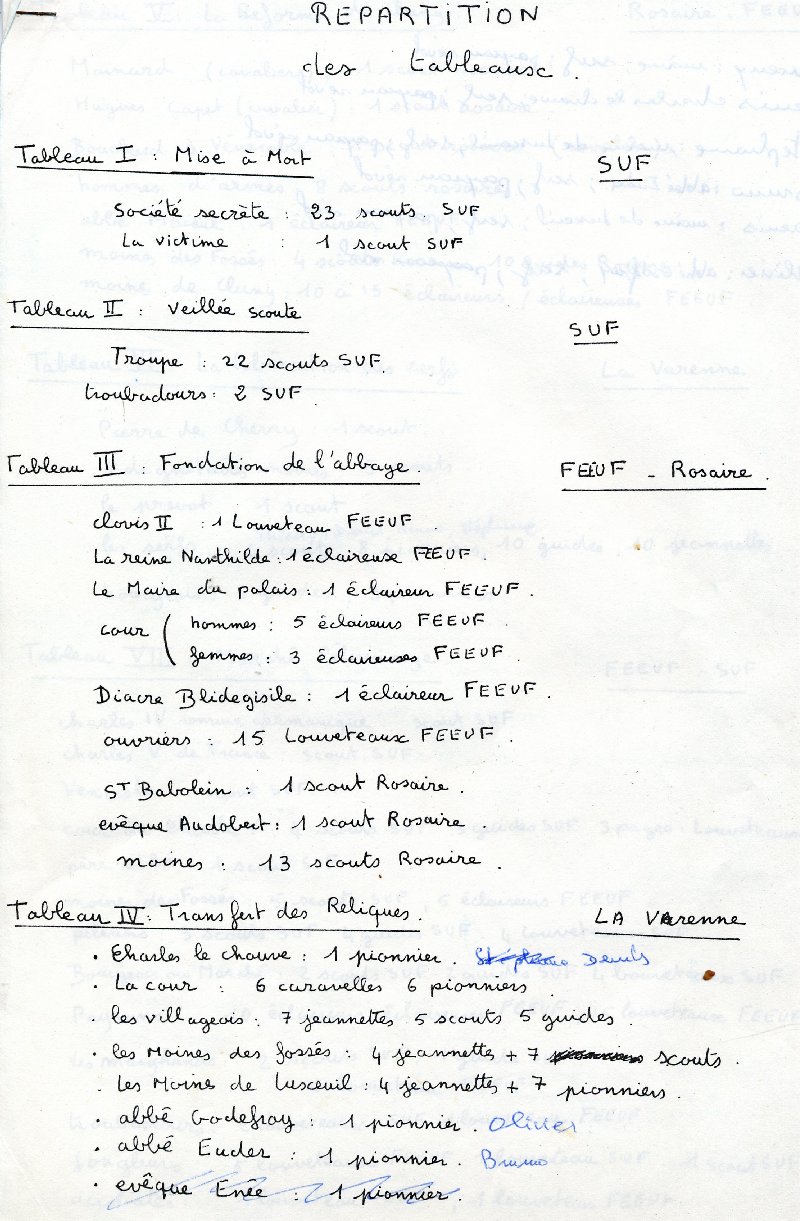 REPARTITION
des tableaux.
Tableau I : Mise à Mort SUF
Société secrète : 23 scouts SUF
La victime : 1 scout SUF
Tableau II : Veillée scoute SUF
Troupe : 22 scouts SUF.
troubadours : 2 SUF.
Tableau III : Fondation de l'abbaye. FEEUF - Rosaire.
clovis II : 1 Louveteau FEEUF.
La reine Nanthilde : 1 éclaireuse FEEUF.
Le Maire du palais : 1 éclaireur FEEUF.
cour ( hommes : 5 éclaireurs FEEUF.
femmes : 3 éclaireuses FEEUF.
Diacre Blidegisile : 1 éclaireur FEEUF.
ouvriers : 15 Louveteaux FEEUF.
St Babolein : 1 scout Rosaire.
evêque Audobert : 1 scout Rosaire.
moines : 13 scouts Rosaire.
Tableau IV : Transfert des Reliques. LA VArenne
. Charles le chauve : 1 pionnier. Stéphane Denis
. La cour : 6 caravelles 6 pionniers
. les villageois : 7 jeannettes 5 scouts 5 guides.
. les Moines des fossés : 4 jeannettes + 7 pionniers scouts.
. les Moines de Luxeuil : 4 jeannettes + 7 pionniers.
. abbé Godefroy : 1 pionnier. Olivier
. abbé Eudes : 1 pionnier. Bruno
. evêque Enée : 1 pionnier.